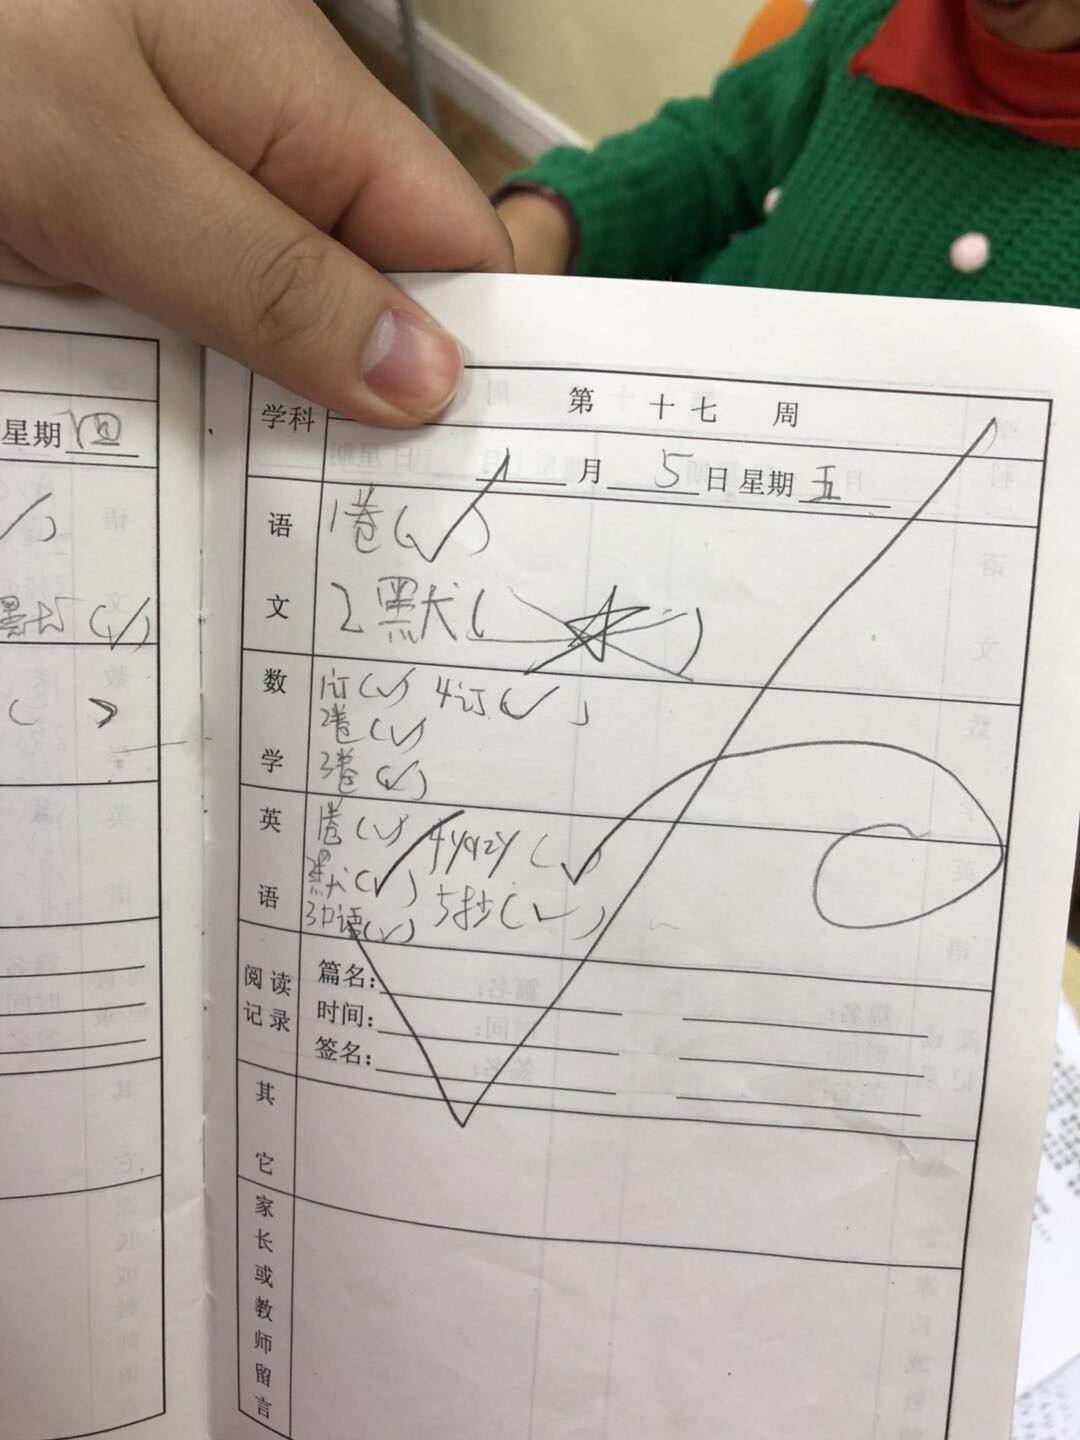 星期 四
第 十七 周
学科
1 月 5 日 星期 五
语文
1卷(✓)
2默(
数学
1订(✓) 4订(✓)
2卷(✓)
3卷(✓)
英语
1卷(✓) 4yqzy(✓)
2默(✓)
3口语(✓) 5抄(✓)
阅读记录
篇名:
时间:
签名:
其它
家长或教师留言